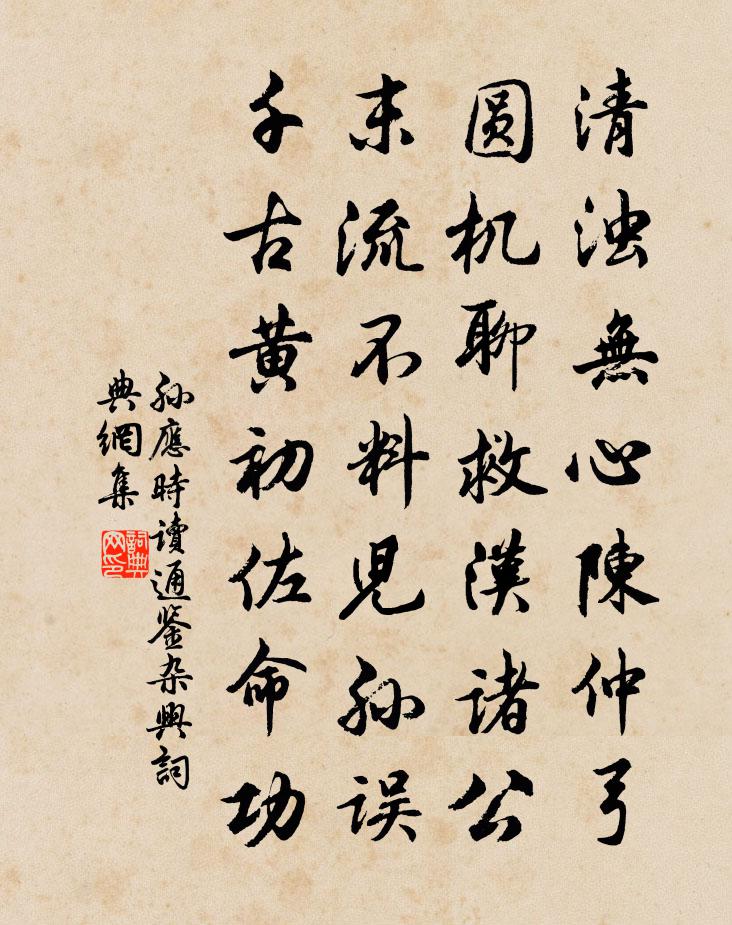 清浊無心陳仲弓
圆机聊救漢諸公
末流不料児孙误
千古黄初佐命功
孙應時读通鉴杂興詞
典網集
詞典
网印